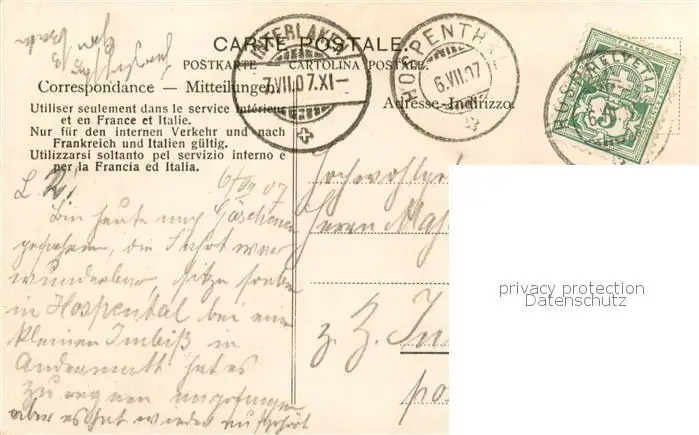 CARTE POSTALE.
POSTKARTE — CARTOLINA POSTALE.
Correspondance — Mitteilungen
Adresse-Indirizzo.
Utiliser seulement dans le service intérieur
et en France et Italie.
Nur für den internen Verkehr und nach
Frankreich und Italien gültig.
Utilizzarsi soltanto pel servizio interno e
per la Francia ed Italia.
INTERLAKEN
7.VII.07.XI-
HOSPENTHAL
6.VII.07
FRANCO
HELVETIA
5
L 2!
6/VII 07
Bin heute
gefahren, die Fahrt war
wunderbar, sitze soeben
in Hospental bei einem
kleinen Imbiß in
Andermatt hat es
zu regnen angefangen
aber es hat wieder aufgehört
Herrn
z. Z.
privacy protection
Datenschutz